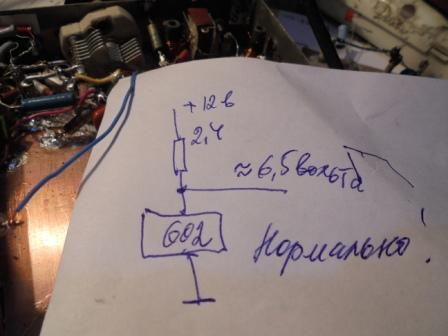 +12в
2,4
≈6,5вольта
602
Нормально!